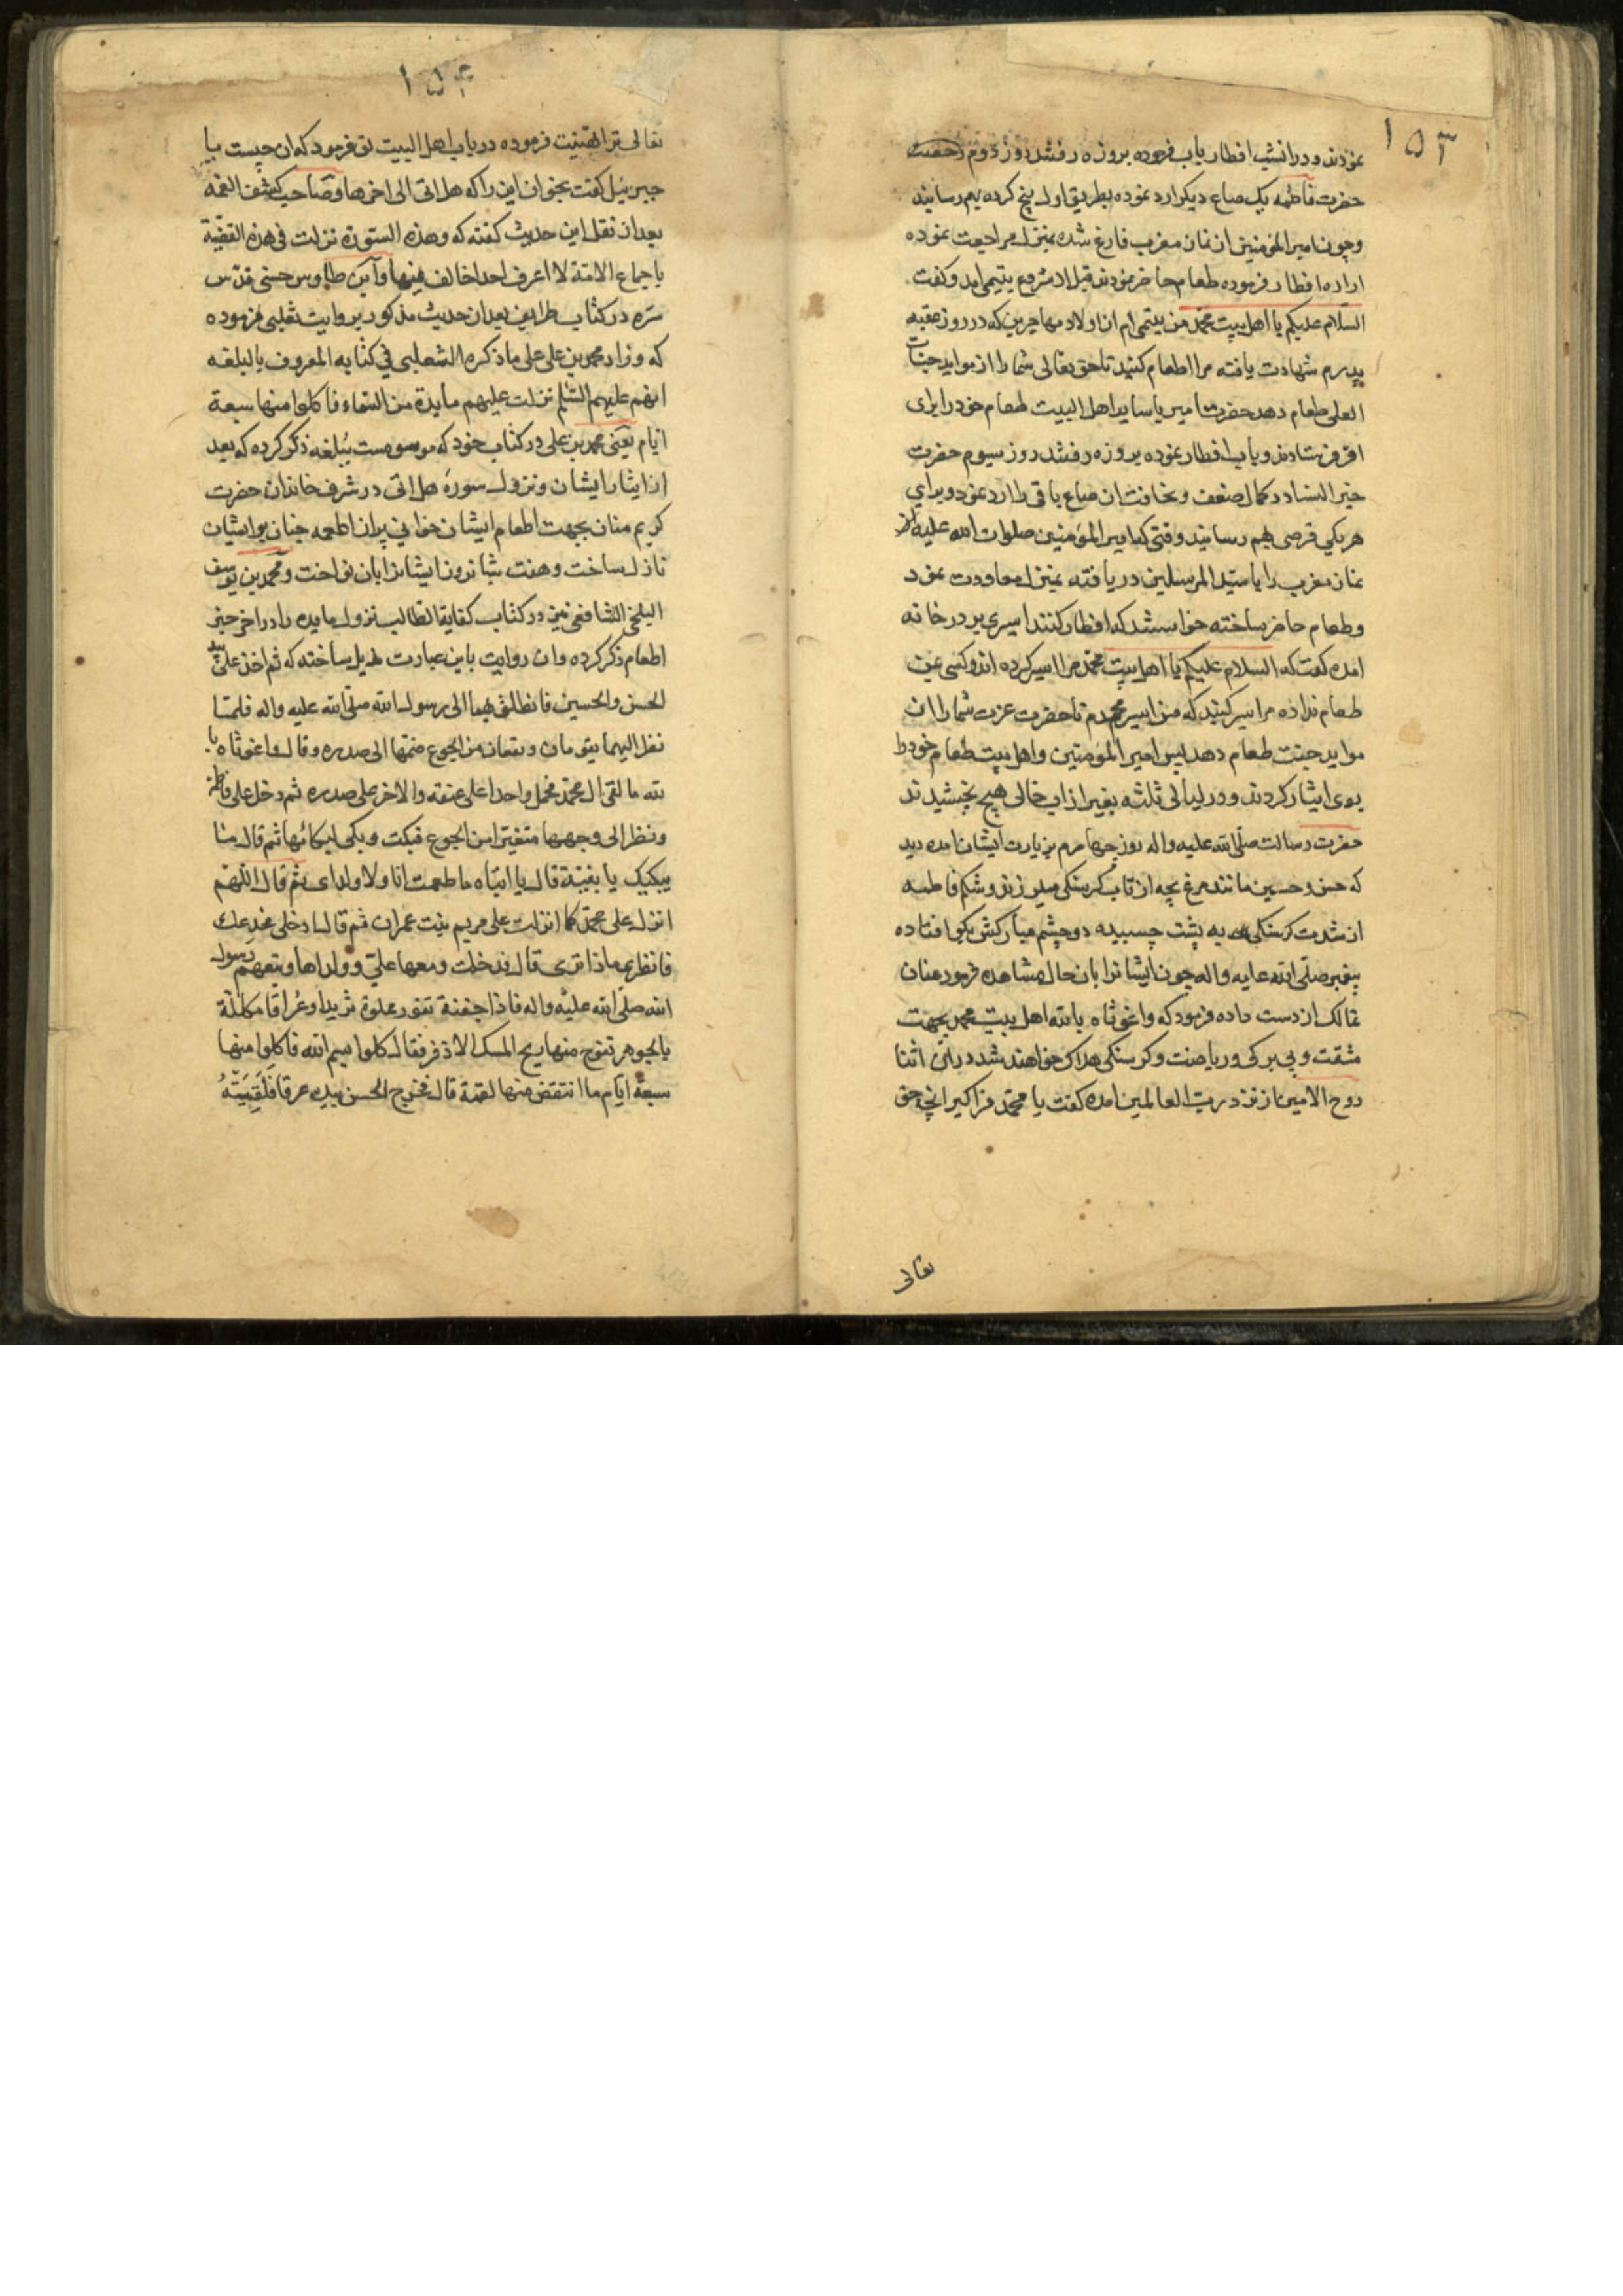 ۱۵۳
نمودند و در انشب افطار باب فرموده بروزه رفتند روز دوم رخصت
حضرت فاطمه یک صاع دیکر ارد نموده بطریق اول پنج کرده بهم رسانیند
و چون امیر المؤمنین از نماز مغرب فارغ شده بمنزل مراجعت نموده
اراده افطار فرموده طعام حاضر نمودند قبل از شروع یتیمی امد و کفت
السلام علیکم یا اهل بیت محمد من یتیمی ام از اولاد مهاجرین که در روز عقبه
پدرم شهادت یافته مرا اطعام کنید تا حق تعالی شما را از مواید جنات
العلی طعام دهد حضرت امیر با سایر اهل البیت طعام خود را برای
او فرستادند و باب افطار نموده بروزه رفتند روز سیوم حضرت
خیر النسا در کمال ضعف و نحافت ان صاع باقی را ارد نمود و برای
هر یکی قرصی بهم رسانید وقتی که امیر المؤمنین صلوات الله علیه از
نماز مغرب را با سید المرسلین دریافته بمنزل معاودت نمود
و طعام حاضر ساخته خواستند که افطار کنند اسیری بر در خانه
امده کفت که السلام علیکم یا اهل بیت محمد مرا اسیر کرده اند و کسی بمن
طعام نداده مرا سیر کنید که من اسیر محمدم تا حضرت عزت شما را از
مواید جنت طعام دهد پس امیر المؤمنین و اهل بیت طعام خود را
بوی ایثار کردند و در لیالی ثلثه بغیر از اب خالی هیچ نچشیدند
حضرت رسالت صلی الله علیه واله روز چهارم بزیارت ایشان امده دید
که حسن و حسین مانند مرغ بچه از تاب کرسنکی میلرزند و شکم فاطمه
از شدت کرسنکی به پشت چسبیده دو چشم مبارکش بکو افتاده
پیغمبر صلی الله علیه واله چون ایشانرا بان حال مشاهده فرمود عنان
تمالک از دست داده فرمود که واغوثاه بالله اهل بیت محمد بجهت
مشقت و بی برکی و ریاضت و کرسنکی هلاک خواهند شد در این اثنا
روح الامین از نزد رب العالمین امده کفت یا محمد فراکیر انچه حق
تعالی
۱۵۴
تعالی ترا تهنیت فرموده در باب اهل البیت تو فرمود که ان چیست یا
جبرئیل کفت بخوان این را که هل اتی الی اخرها و صاحب کشف الغمه
بعد از نقل این حدیث کفته که وهذه السورة نزلت فی هذه القضیة
باجماع الامة لا اعرف احدا خالف فیها و ابن طاوس حسنی قدس
سره در کتاب طرایف بعد از حدیث مذکور بروایت ثعلبی فرموده
که وزاد محمد بن علی علی ما ذکره الثعلبی فی کتابه المعروف بالبلغه
انهم علیهم السلم نزلت علیهم مایدة من السماء فاکلوا منها سبعة
ایام یعنی محمد بن علی در کتاب خود که موسومست ببلغه ذکر کرده که بعد
از ایثار ایشان و نزول سورهٔ هل اتی در شرف خاندان حضرت
کریم منان بجهت اطعام ایشان خوانی پر از اطعمه جنان بر ایشان
نازل ساخت و هفت شبانروز ایشانرا بان نواخت و محمد بن یوسف
البلخی الشافعی نیز در کتاب کفایة الطالب نزول مایده را در اخر خبر
اطعام ذکر کرده و ان روایت باین عبارت مذیل ساخته که ثم اخذ علی بید
الحسن والحسین فانطلق بهما الی رسول الله صلی الله علیه واله فلما
نظر الیهما یقومان ویقعان من الجوع ضمهما الی صدره وقال واغوثاه با
لله ما لقی ال محمد فحمل واحدا علی عنقه والاخر علی صدره ثم دخل علی فاطمة
ونظر الی وجهها متغیرا من الجوع فبکت وبکی لبکائها ثم قال ما
یبکیک یا بنیة قال یا ابتاه ما طعمت انا ولا ولدای ثم قال اللهم
انزل علی محمد کما انزلت علی مریم بنت عمران ثم قال ادخلی مخدعک
فانظری ماذا تری قال فدخلت ومعها علی وولداها وتبعهم رسول
الله صلی الله علیه واله فاذا جفنة تفور مملوة ثریدا وعراقا مکللة
بالجوهر تفوح منها ریح المسک الاذفر فقال کلوا بسم الله فاکلوا منها
سبعة ایام ما انتقض منها لقمة قال فخرج الحسن بیده عرقا فلقیته